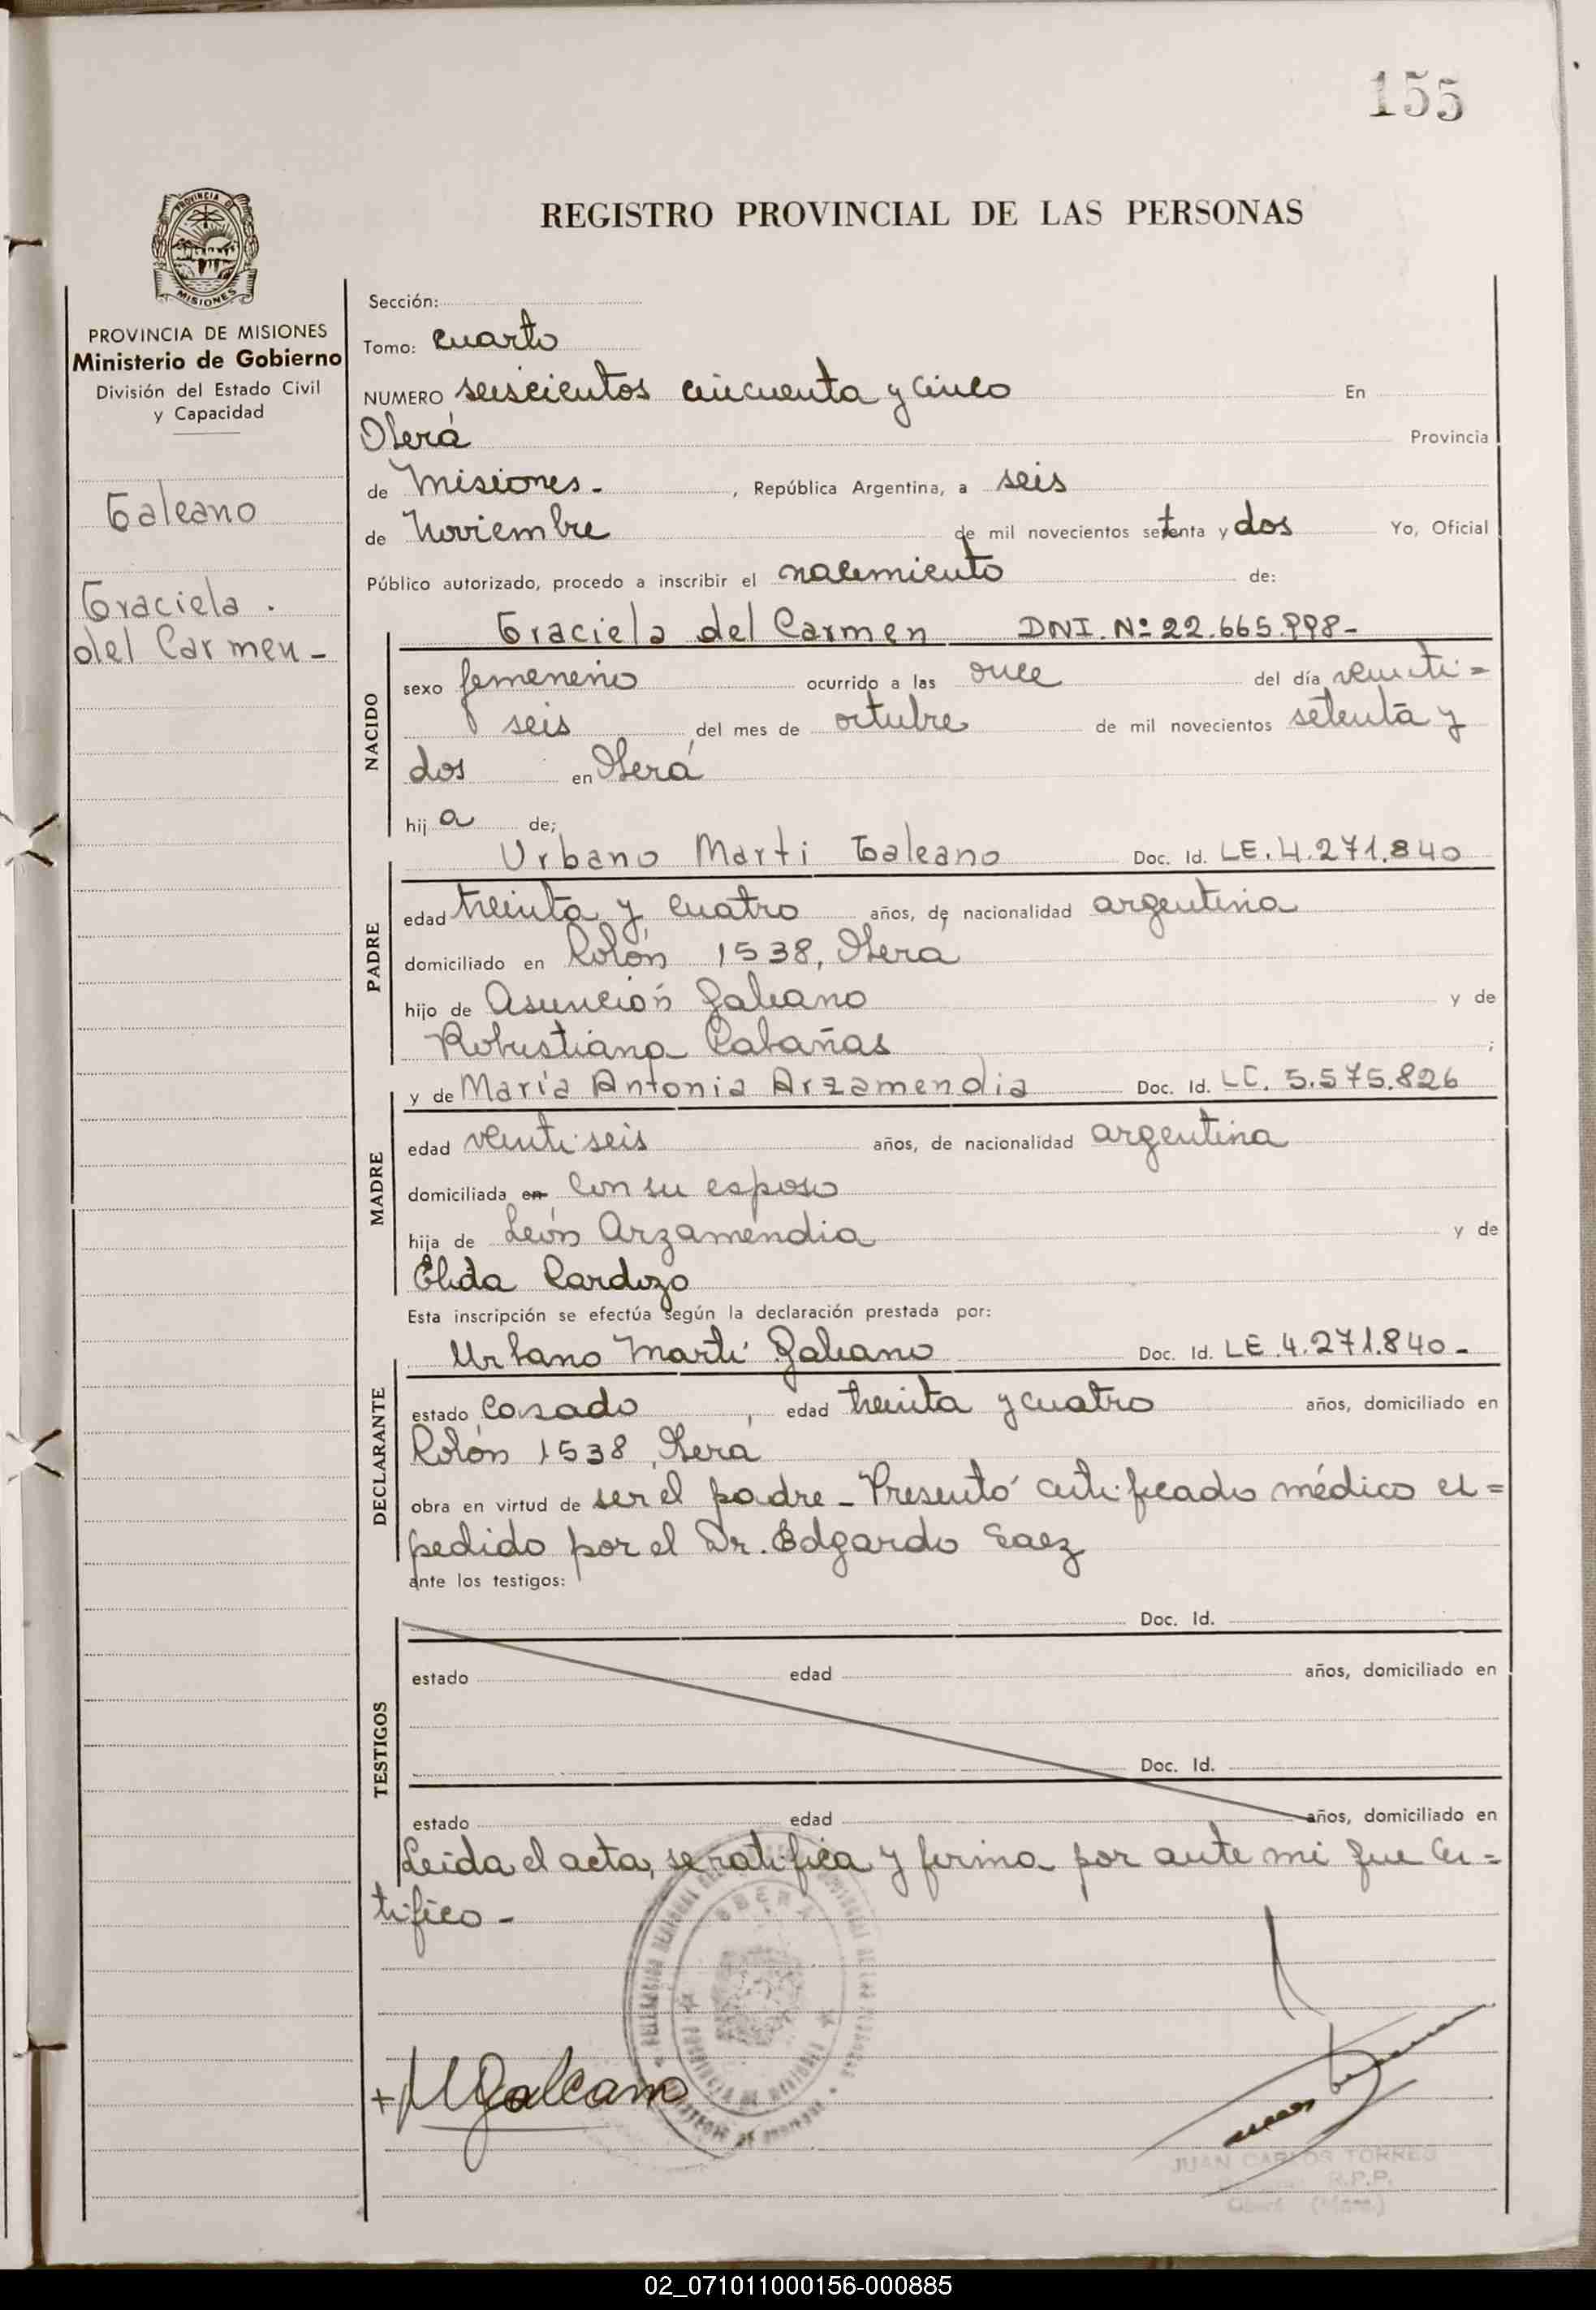 155
REGISTRO PROVINCIAL DE LAS PERSONAS
PROVINCIA DE MISIONES
PROVINCIA DE MISIONES
Ministerio de Gobierno
División del Estado Civil
y Capacidad
Galeano
Graciela .
del Carmen -
Sección:
Tomo: cuarto
NUMERO seiscientos cincuenta y cinco En
Oberá Provincia
de Misiones - , República Argentina, a seis
de Noviembre de mil novecientos setenta y dos Yo, Oficial
Público autorizado, procedo a inscribir el nacimiento de:
Graciela del Carmen DNI. Nº 22.665.998-
NACIDO
sexo femenino ocurrido a las once del día veinti=
seis del mes de octubre de mil novecientos setenta y
dos en Oberá
hij a de;
Urbano Marti Galeano Doc. Id. LE. 4.271.840
PADRE
edad treinta y cuatro años, de nacionalidad argentina
domiciliado en Colón 1538, Oberá
hijo de Asunción Galeano y de
Robustiana Cabañas ;
y de María Antonia Arzamendia Doc. Id. LC. 5.575.826
MADRE
edad veinti seis años, de nacionalidad argentina
domiciliada en con su esposo
hija de León Arzamendia y de
Elida Cardozo
Esta inscripción se efectúa según la declaración prestada por:
Urbano Marti Galeano Doc. Id. LE 4.271.840-
DECLARANTE
estado casado , edad treinta y cuatro años, domiciliado en
Colón 1538, Oberá
obra en virtud de ser el padre - Presentó certificado médico ex=
pedido por el Dr. Edgardo Saez
ante los testigos:
TESTIGOS
Doc. Id.
estado edad años, domiciliado en
Doc. Id.
estado edad años, domiciliado en
Leída el acta, se ratifica y firma por ante mi que cer=
tifico -
OBERA
PROVINCIA DE MISIONES
+ UGaleano
JUAN CARLOS TORRES
R.P.P.
Oberá (Mnes.)
02_071011000156-000885